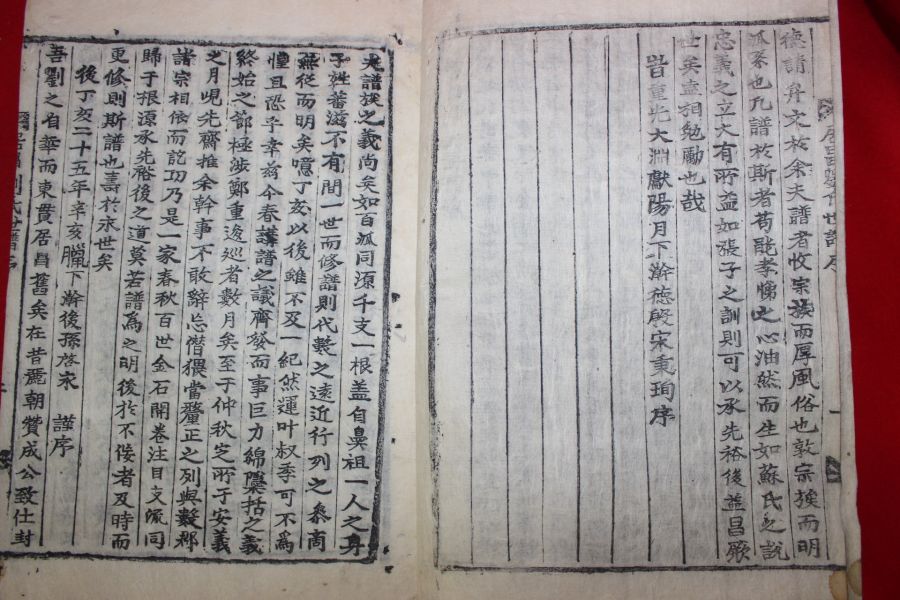 德請弁文於余夫譜者收宗族而厚風俗也敦宗族而明
派系也凡譜於斯者苟能孝悌之心油然而生如蘇氏之說
忠義之立大有所益如張子之訓則可以承先裕後益昌厥
世矣盍相勉勵也哉
旹重光大淵獻陽月下澣德殷宋秉珣序
夫譜族之義尚矣如百派同源千支一根盖自鼻祖一人之身
子姓蕃滋不有間一世而修譜則代數之遠近行列之叅商
無從而明矣噫丁亥以後雖不及一紀然運叶叔季可不為
惶且恐乎幸玆今春講譜之議齊發而事巨力綿檃括之義
終始之節極涉鄭重逡巡者數月矣至于仲秋定所于安義
之月晛先齋推余幹事不敢辭忘僭猥當釐正之列與數郡
諸宗相依而訖功乃是一家春秋百世金石開卷注目支流同
歸于根源承先裕後之道莫若譜為之明後於不倿者及時而
更修則斯譜也壽於永世矣
後丁亥二十五年辛亥臘下澣後孫啓永 謹序
吾劉之自華而東貫居昌舊矣在昔麗朝贊成公致仕封